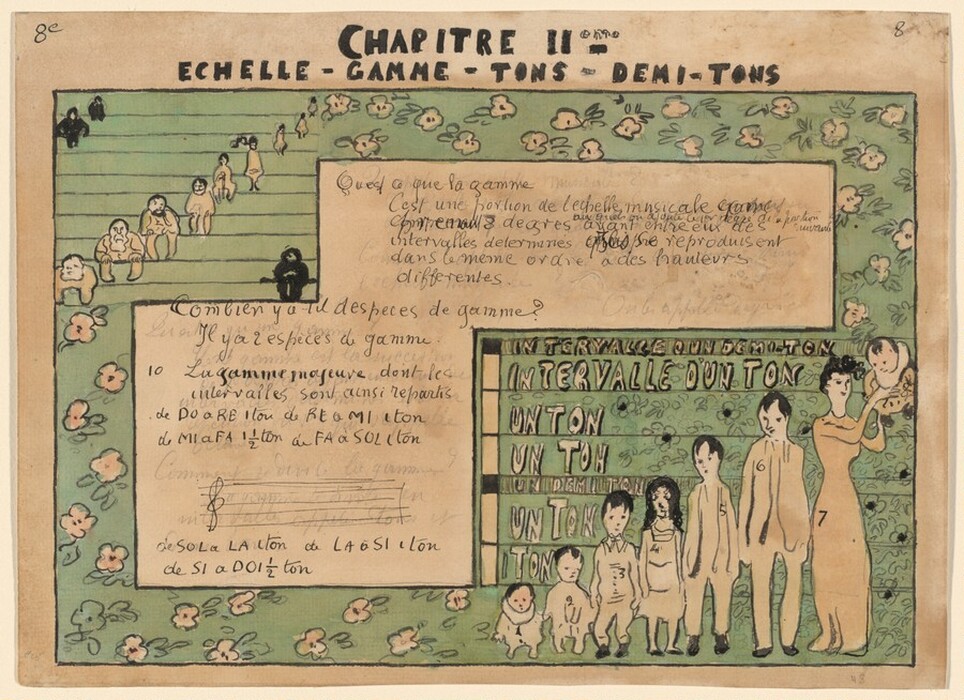 8e
8
CHAPITRE II
ECHELLE - GAMME - TONS - DEMI-TONS
Quest ce que la gamme
C'est une portion de l'echelle musicale
degres ayant entre eux des
intervalles determines se reproduisent
dans le meme ordre a des hauteurs
differentes
Combien y a til despeces de gamme?
Il y a 2 espèces de gamme.
10 La gamme majeure dont les
intervalles sont ainsi repartis
de DO a RE 1 ton de RE a MI 1 ton
de MI a FA 1 1/2 ton de FA a SOL 1 ton
de SOL a LA 1 ton de LA a SI 1 ton
de SI a DO 1 1/2 ton
INTERVALLE D'UN DEMI-TON
INTERVALLE D'UN TON
UN TON
UN TON
UN DEMI TON
UN TON
1 TON
1
2
3
4
5
6
7